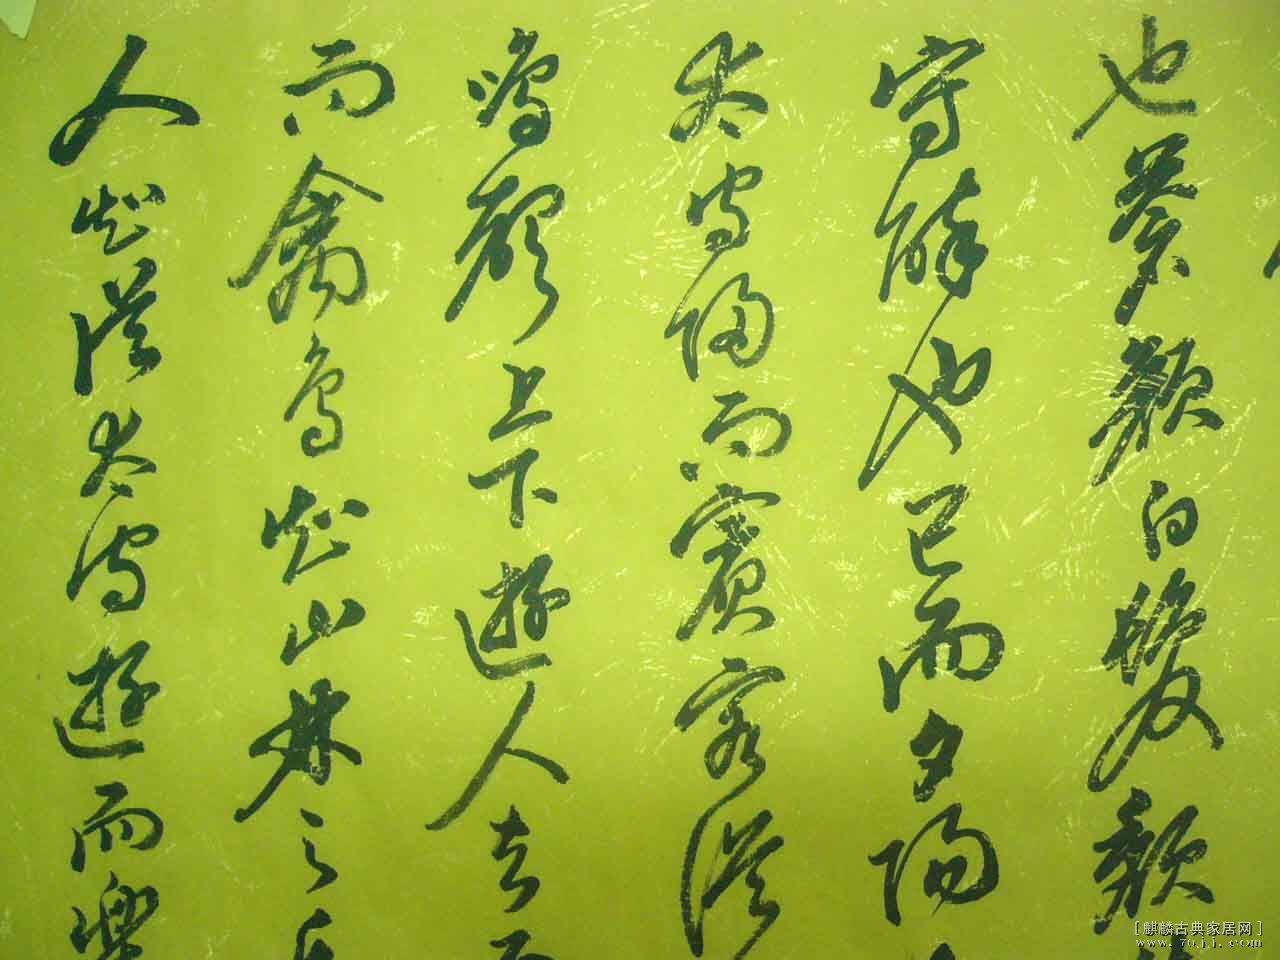 也蒼顏白髮頹
守醉也已而夕陽
太守歸而賓客從
鳴聲上下遊人去
而禽鳥知山林之
人知從太守遊而樂
[麒麟古典家居网]